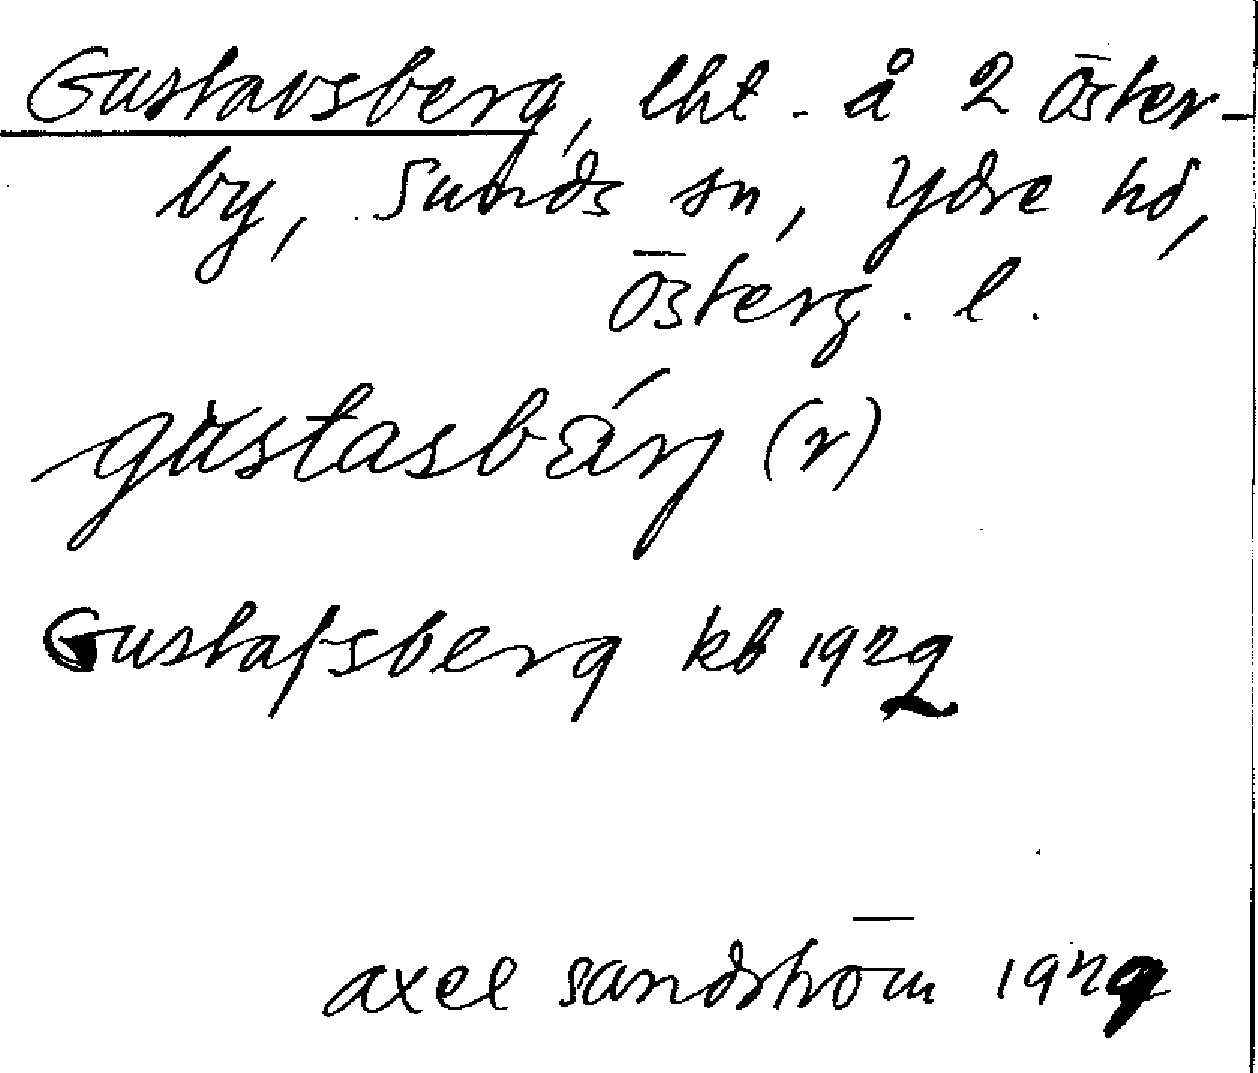 Gustavsberg, lht. å 2 Öster-
by, Sunds sn, Ydre hd,
Österg. l.
gùstasbǽrj (r)
Gustafsberg kb 1929
axel sandström 1929